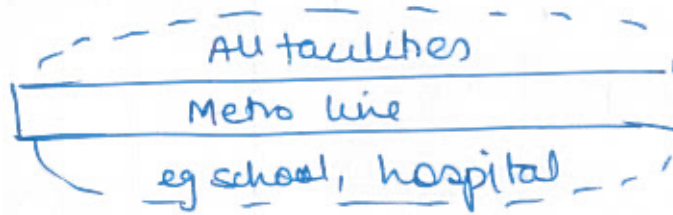 All facilities
Metro line
eg school, hospital